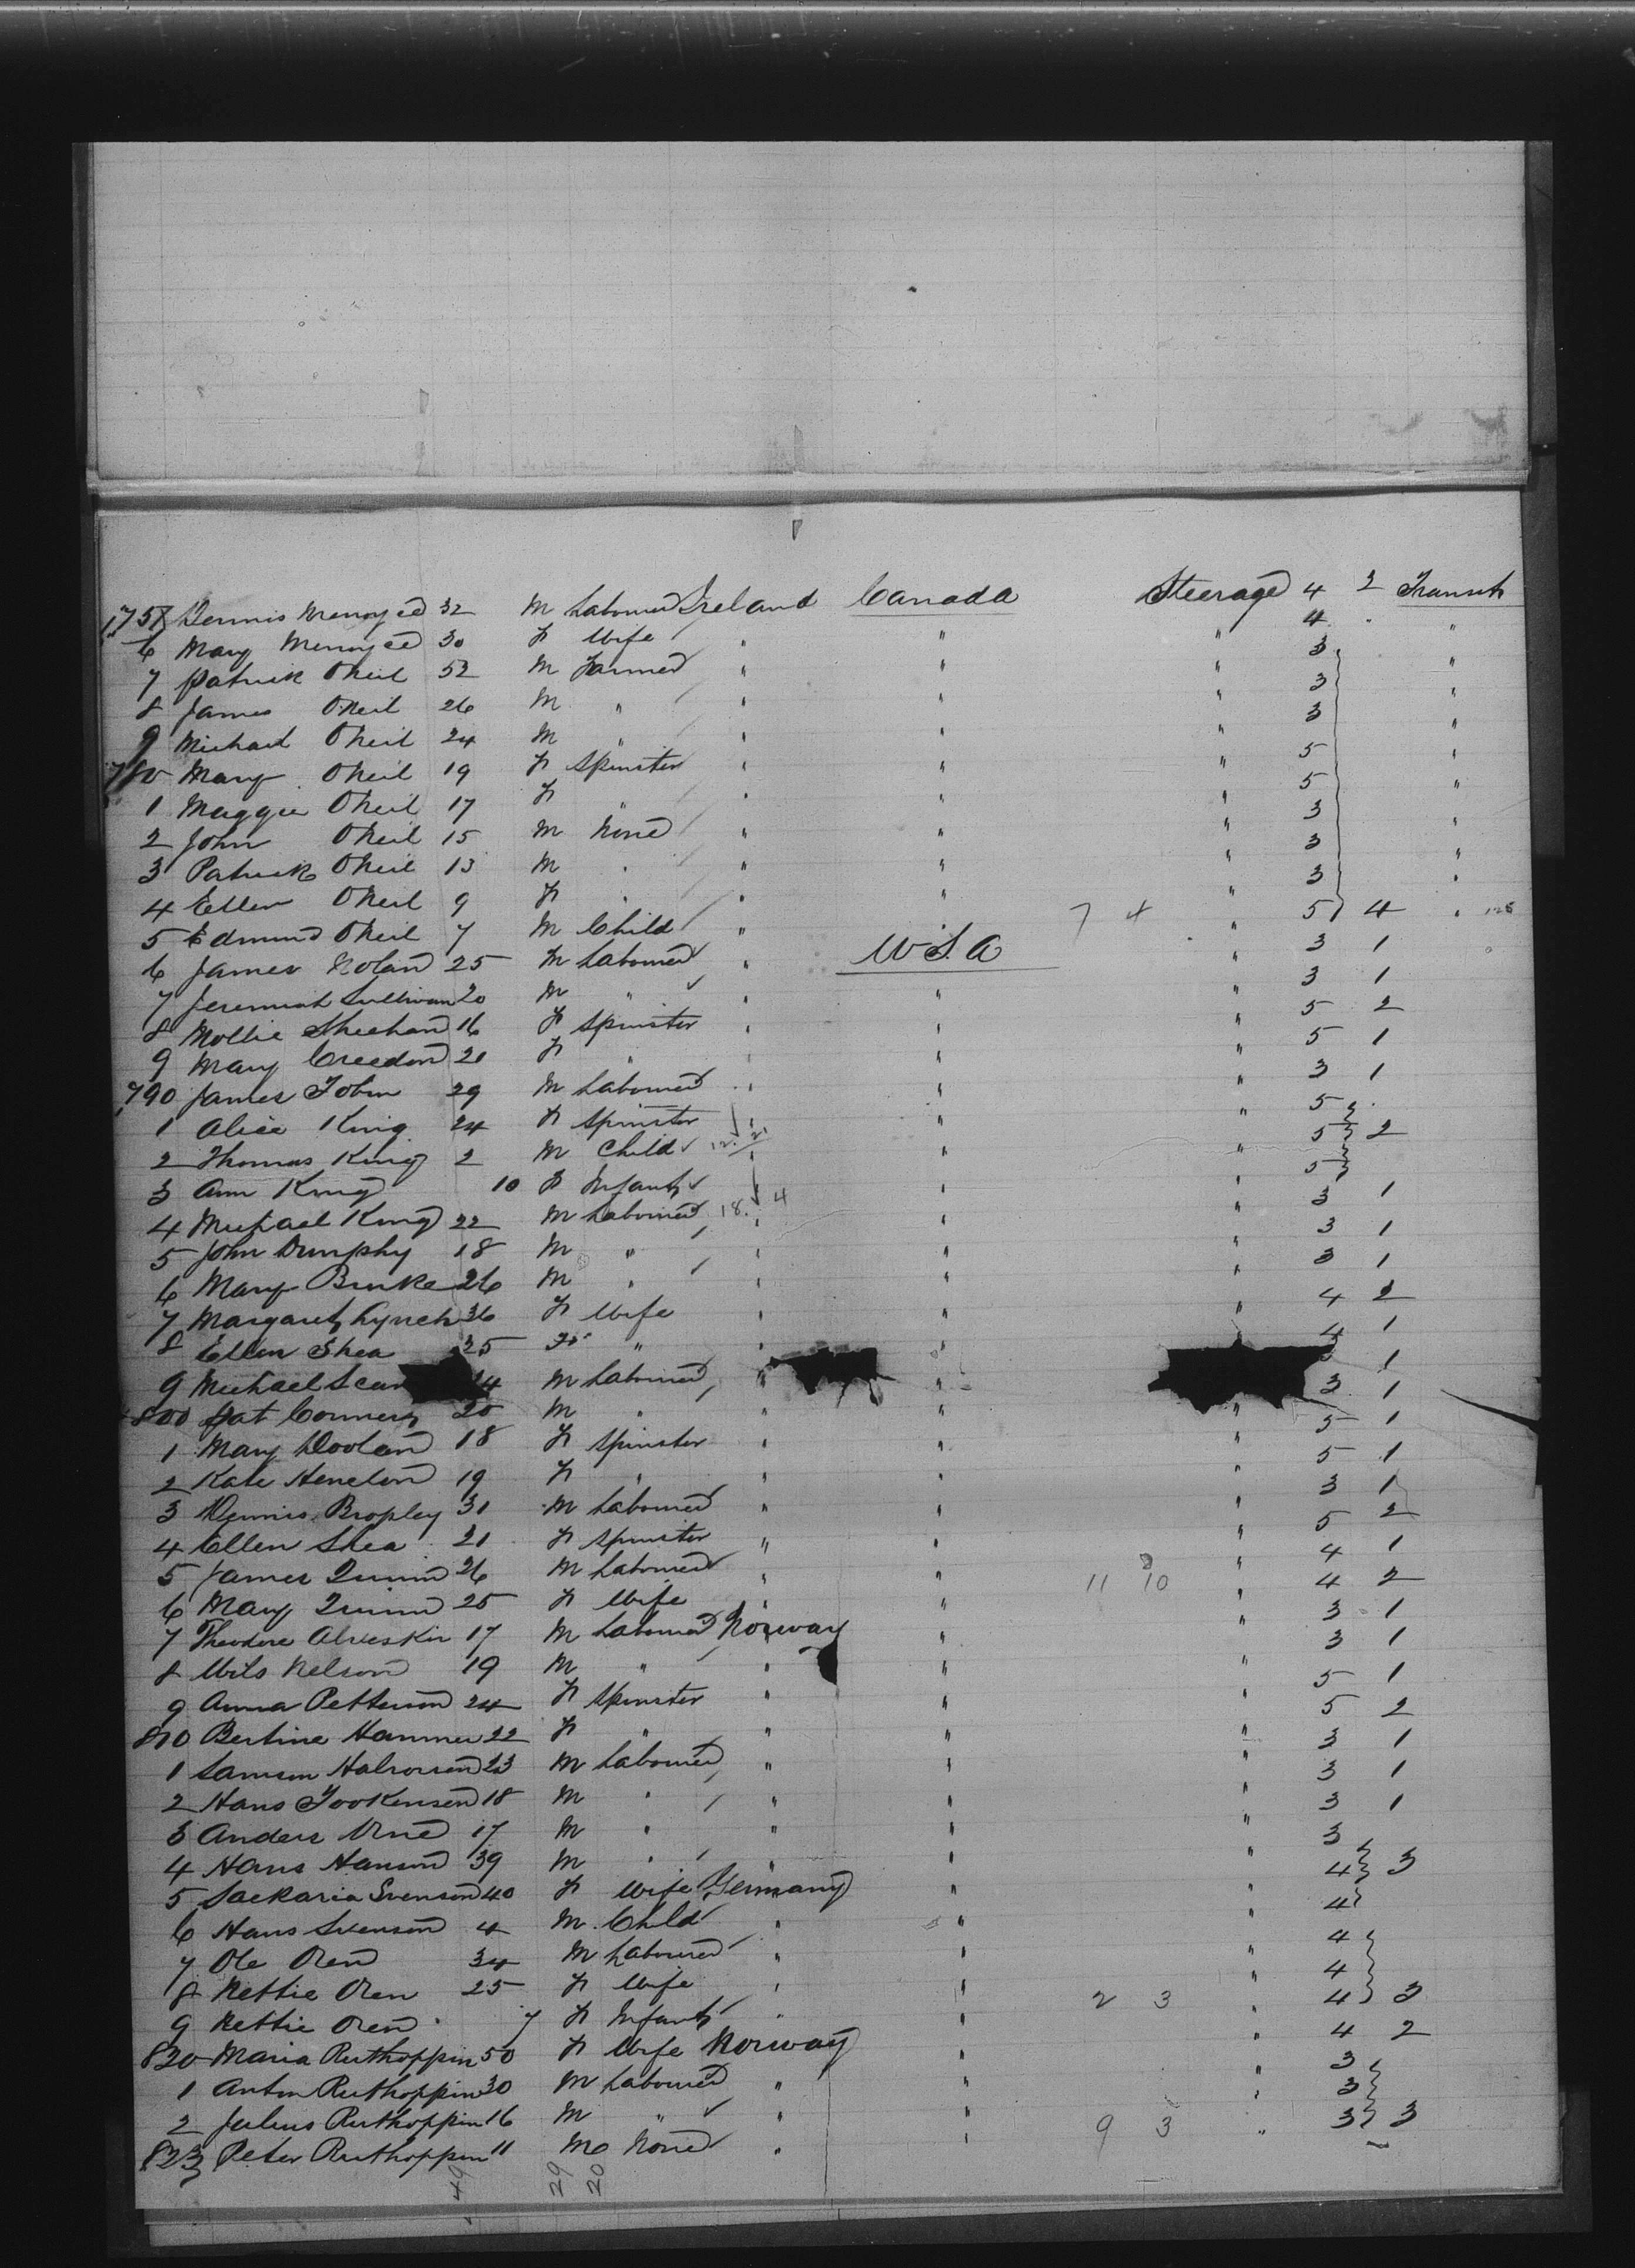 775 Dennis 32 M Labourer Ireland Canada Steerage 4 2 Transit
6 Mary 30 F Wife " " " 4 "
7 Patrick ONeil 52 M Farmer " " " 3 "
8 James ONeil 26 M " " " " 3 "
9 Michael ONeil 24 M " " " " 3 "
780 Mary ONeil 19 F Spinster " " " 5 "
1 Maggie ONeil 17 F " " " " 5 "
2 John ONeil 15 M None " " " 3 "
3 Patrick ONeil 13 M " " " " 3 "
4 Ellen ONeil 9 F " " " " 3 "
5 Edmund ONeil 7 M Child " " 7 4 " 5 4 "
6 James Nolan 25 M Labourer " U.S.A " 3 1
7 Jeremiah Sullivan 20 M " " " " 3 1
8 Mollie Sheehan 16 F Spinster " " " 5 2
9 Mary Creedon 20 F " " " " 5 1
790 James Tobin 29 M Labourer " " " 3 1
1 Alice King 24 F Spinster " " " 5
2 Thomas King 2 M Child " " " 5 2
3 Ann King 10 F Infant " " " 5
4 Michael King 22 M Labourer 18. 4 " " " 3 1
5 John Dunphy 18 M " " " " 3 1
6 Mary Burke 26 M " " " " 3 1
7 Margaret Lynch 36 F Wife " " " 4 2
8 Ellen Shea 35 F " " " " 4 1
9 Michael M Labourer " " 1
800 Pat Connery 20 M " " " 3 1
1 Mary Doolan 18 F Spinster " " " 5 1
2 Kate 19 F " " " " 5 1
3 Dennis Bropley 31 M Labourer " " " 3 1
4 Ellen Shea 21 F Spinster " " " 5 2
5 James Quinn 26 M Labourer " " " 4 1
6 Mary Quinn 25 F Wife " " 11 10 " 4 2
7 Theodore 17 M Labourer Norway " " 3 1
8 Nils Nelson 19 M " " " " 3 1
9 Anna Petterson 24 F Spinster " " " 5 1
810 Bertine Hammer 22 F " " " " 5 2
1 Samson Halvorsen 23 M Labourer " " " 3 1
2 Hans 18 M " " " " 3 1
3 Anders 17 M " " " " 3 1
4 Hans Hanson 39 M " " " " 3
5 Sackaria Svenson 40 F Wife Germany " " 4 3
6 Hans Svenson 4 M Child " " " 4
7 Ole Oren 34 M Labourer " " " 4
8 Nettie Oren 25 F Wife " " " 4
9 Nettie Oren 7 F Infant " " 2 3 " 4 3
820 Maria Ruthoppin 50 F Wife Norway " " 4 2
1 Anton Ruthoppin 30 M Labourer " " " 3
2 Julius Ruthoppin 16 M " " " " 3
823 Peter Ruthoppin 11 M None " " 9 3 " 3 3
49 29 20